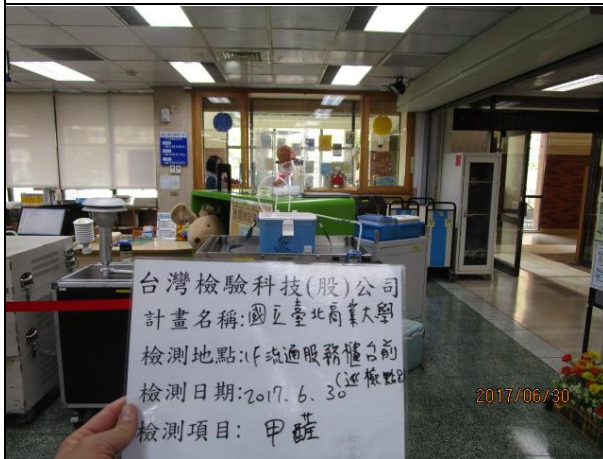 台灣檢驗科技(股)公司
計畫名稱:國立臺北商業大學
檢測地點:1F流通服務櫃台前
(巡檢點8
檢測日期:2017.6.30
檢測項目: 甲醛
2017/06/30